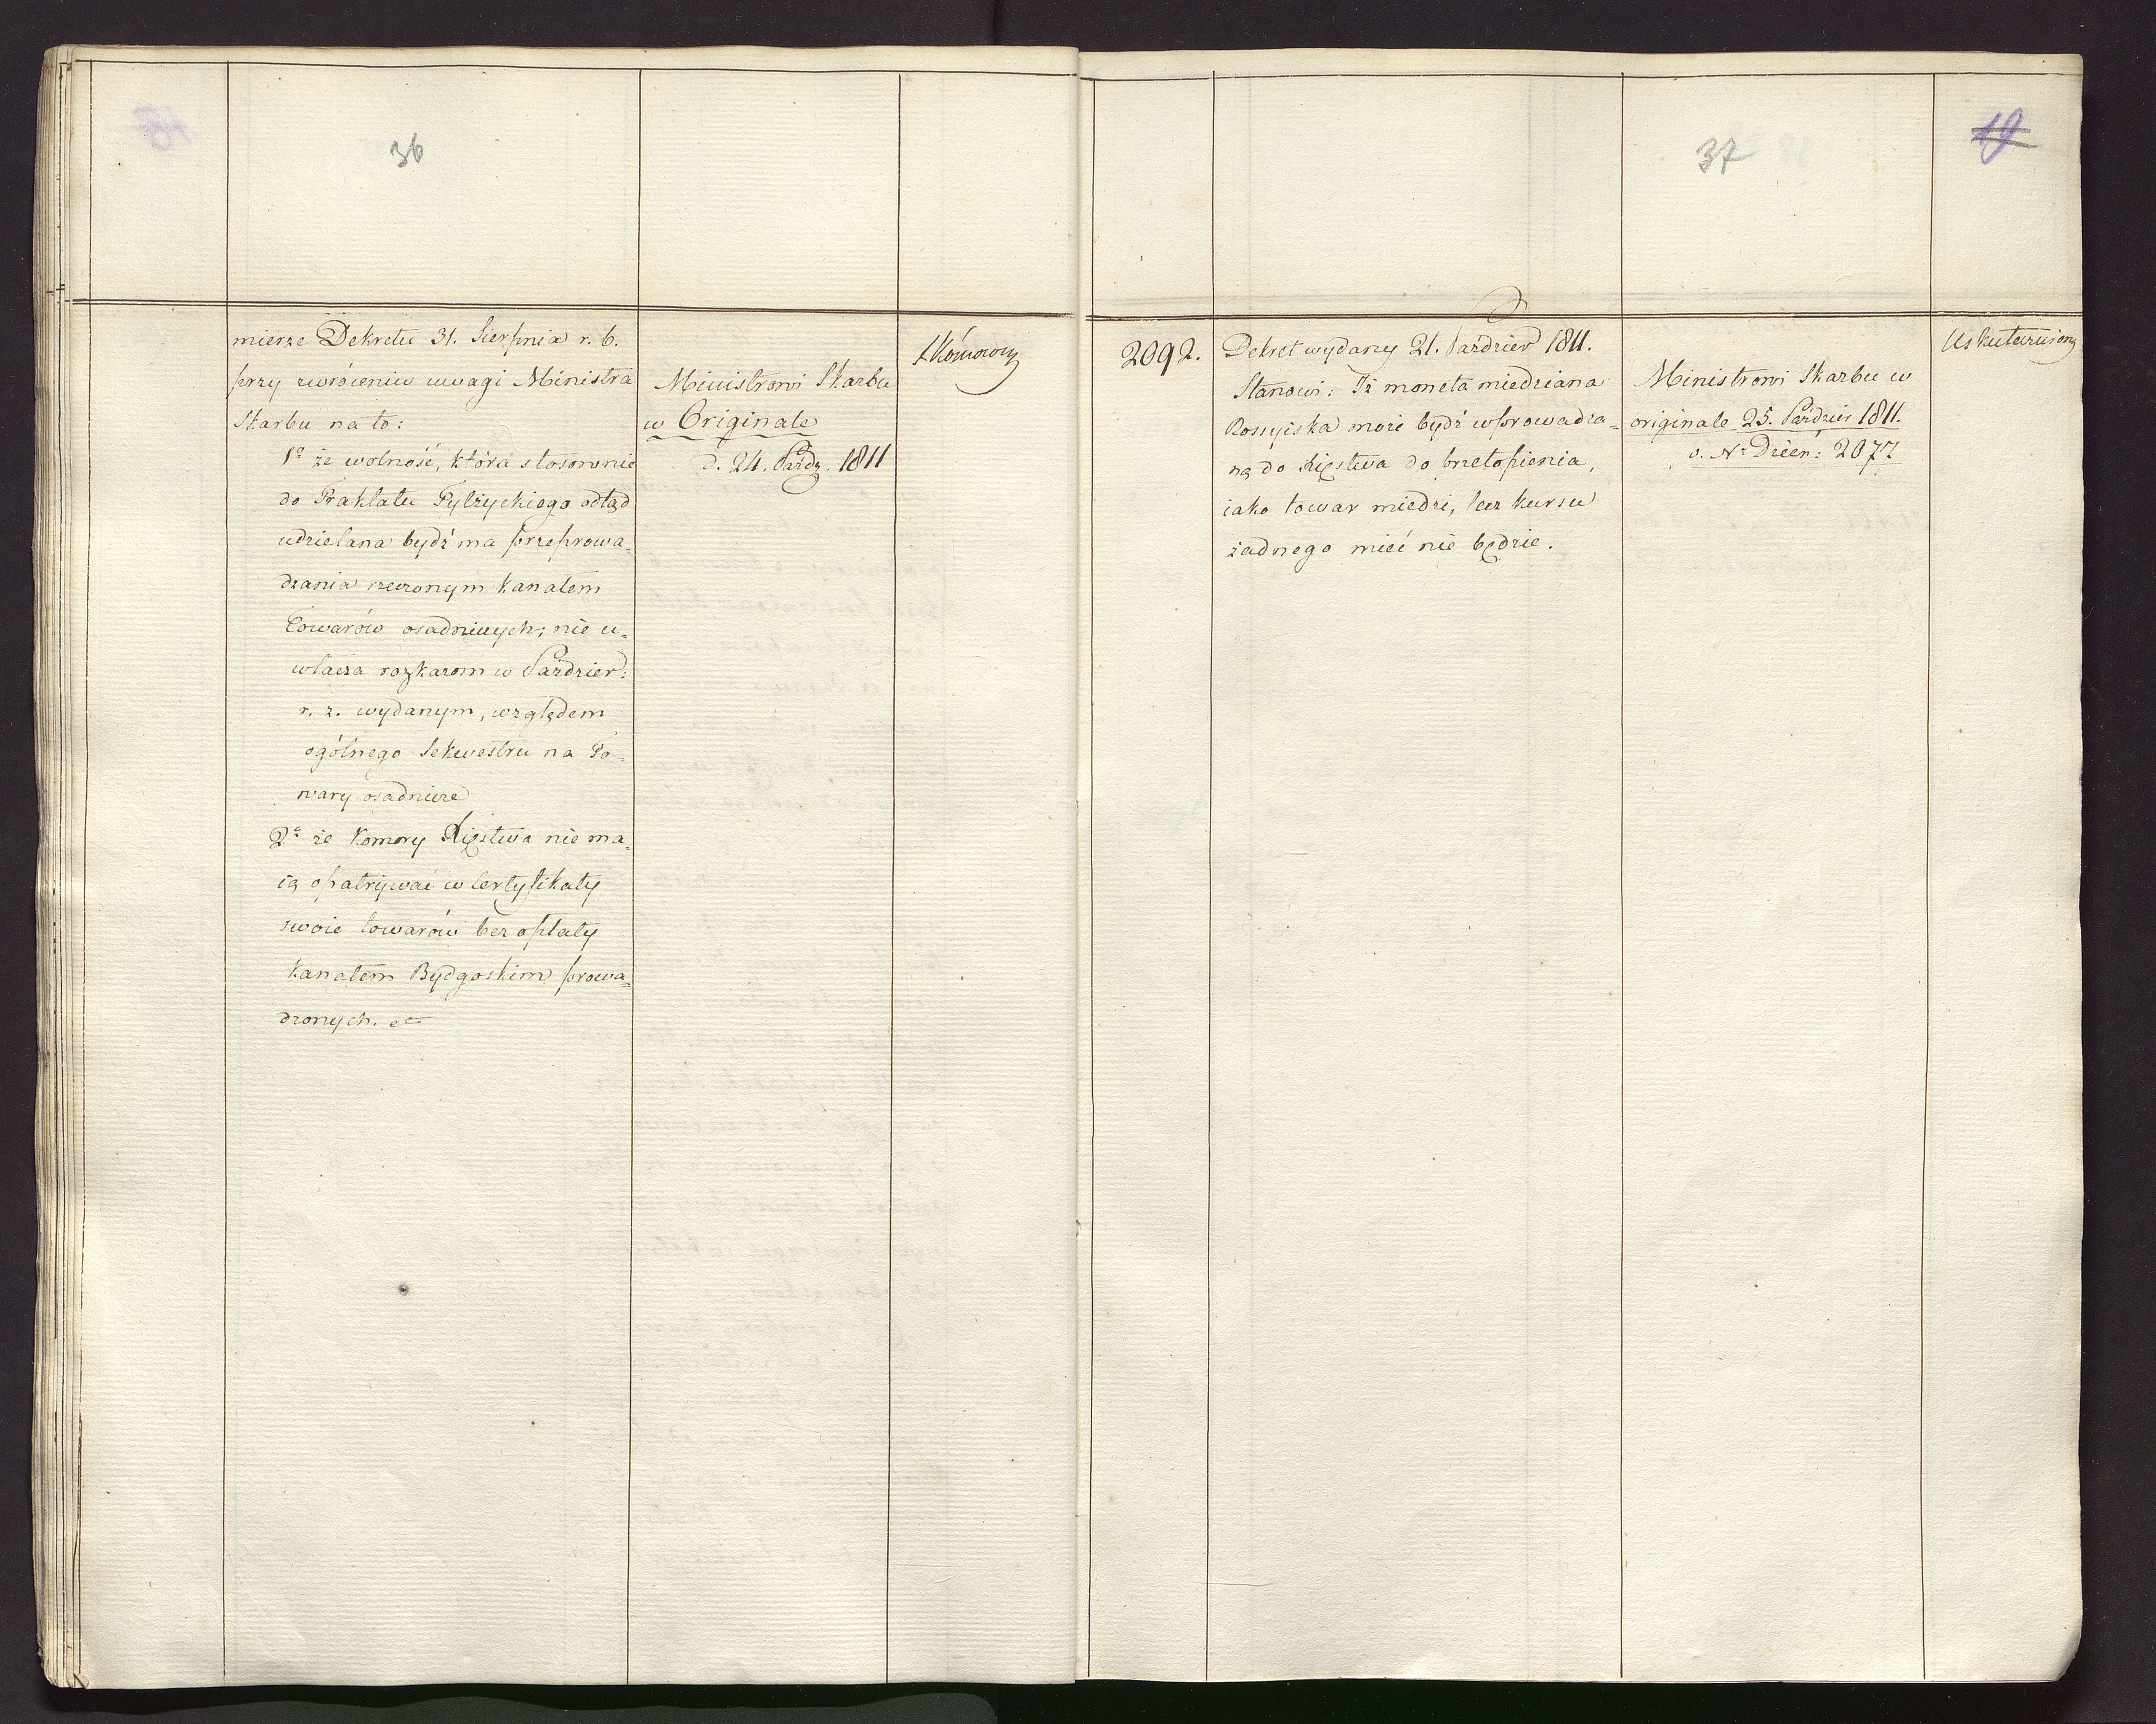 36
mierze Dekretu 31. Sierpnia r. b.
przy zwróceniu uwagi Ministra
Skarbu na to:
1º że wolność, która stosownie
do Traktatu Tylżyckiego odtąd
udzielana bydź ma przeprowa-
dzania rzeczonym kanałem
Towarów osadniczych; nie u-
włacza rozkazom w Paździer:
r. z. wydanym, względem
ogólnego Sekwestru na To-
wary osadnicze
2º że Komory Xięstwa nie ma-
ią opatrywać w Certyfikaty
swoie towarów bez opłaty
Kanałem Bydgoskim prowa-
dzonych. etc
Ministrowi Skarbu
w Originale
d. 24. Paźdz. 1811
37
19
2092.
Dekret wydany 21. Paździer 1811.
Stanowi: Iż moneta miedziana
Rossyiska może bydź wprowadza-
ną do Xięstwa do przetopienia,
iako towar miedzi, lecz kursu
żadnego mieć nie będzie.
Ministrowi Skarbu w
originale 25. Paździer 1811.
v. Nr Dzien: 2077
Uskuteczniony